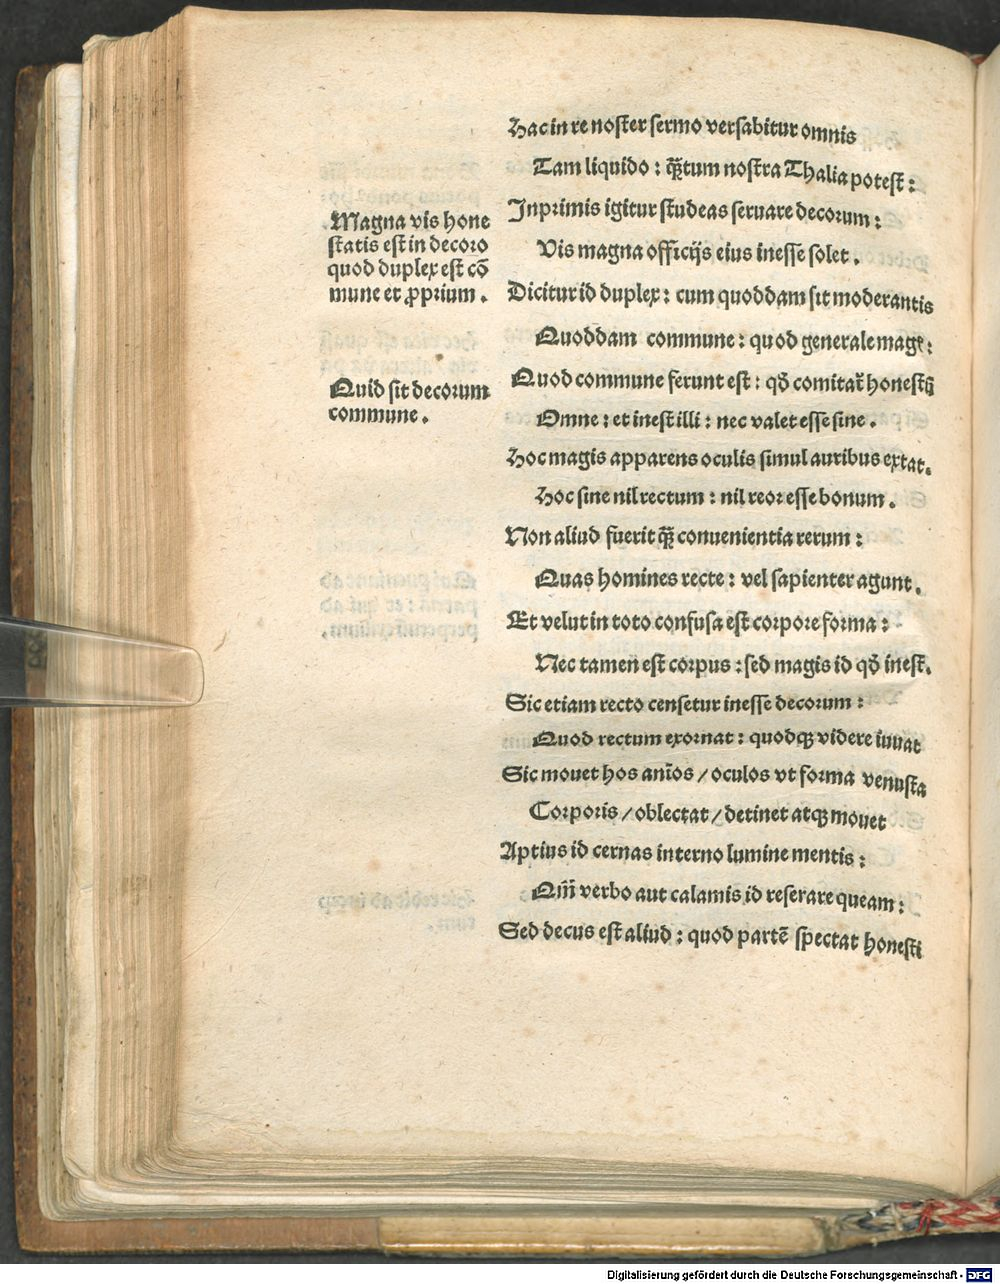 Hac in re noster sermo versabitur omnis
Tam liquido : q̄ꝫtum nostra Thalia potest :
Inprimis igitur studeas seruare decorum :
Vis magna officijs eius inesse solet .
Dicitur id duplex : cum quoddam sit moderantis
Quoddam commune : quod generale magꝭ :
Quod commune ferunt est : qđ comitat᷑ honestū
Omne : et inest illi : nec valet esse sine .
Hoc magis apparens oculis simul auribus extat.
Hoc sine nil rectum : nil reor esse bonum .
Non aliud fuerit q̄ꝫ conuenientia rerum :
Quas homines recte : vel sapienter agunt .
Et velut in toto confusa est corpore forma :
Nec tamen est corpus : sed magis id qđ inest.
Sic etiam recto censetur inesse decorum :
Quod rectum exornat : quodqꝫ videre iuuat
Sic mouet hos anīos / oculos vt forma venusta
Corporis / oblectat / detinet atqꝫ mouet
Aptius id cernas interno lumine mentis :
Qm̄ verbo aut calamis id reserare queam :
Sed decus est aliud : quod partē spectat honesti
Magna vis hone
statis est in decoro
quod duplex est cō
mune et ꝓprium .
Quid sit decorum
commune .
Digitalisierung gefördert durch die Deutsche Forschungsgemeinschaft - DFG